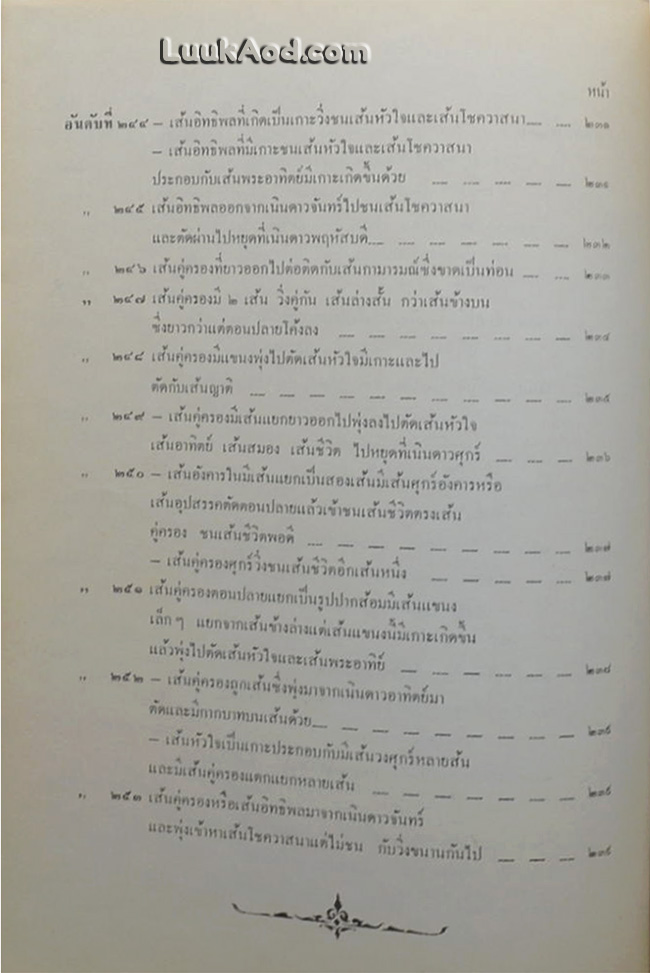 LuukAod.com
หน้า
อันดับที่ ๒๔๔ – เส้นอิทธิพลที่เกิดเป็นเกาะวิ่งชนเส้นหัวใจและเส้นโชควาสนา ๒๓๑
– เส้นอิทธิพลที่มีเกาะชนเส้นหัวใจและเส้นโชควาสนา
ประกอบกับเส้นพระอาทิตย์มีเกาะเกิดขึ้นด้วย ๒๓๑
,, ๒๔๕ เส้นอิทธิพลออกจากเนินดาวจันทร์ไปชนเส้นโชควาสนา
และตัดผ่านไปหยุดที่เนินดาวพฤหัสบดี ๒๓๒
,, ๒๔๖ เส้นคู่ครองที่ยาวออกไปต่อติดกับเส้นกามารมณ์ซึ่งขาดเป็นท่อน ๒๓๓
,, ๒๔๗ เส้นคู่ครองมี ๒ เส้น วิ่งคู่กัน เส้นล่างสั้น กว่าเส้นข้างบน
ซึ่งยาวกว่าแต่ตอนปลายโค้งลง ๒๓๔
,, ๒๔๘ เส้นคู่ครองมีแขนงพุ่งไปตัดเส้นหัวใจมีเกาะและไป
ตัดกับเส้นญาติ ๒๓๕
,, ๒๔๙ – เส้นคู่ครองมีเส้นแยกยาวออกไปพุ่งลงไปตัดเส้นหัวใจ
เส้นอาทิตย์ เส้นสมอง เส้นชีวิต ไปหยุดที่เนินดาวศุกร์ ๒๓๖
,, ๒๕๐ – เส้นอังคารในมีเส้นแยกเป็นสองเส้นมีเส้นศุกร์อังคารหรือ
เส้นอุปสรรคตัดตอนปลายแล้วเข้าชนเส้นชีวิตตรงเส้น
คู่ครอง ชนเส้นชีวิตพอดี ๒๓๗
– เส้นคู่ครองศุกร์วิ่งชนเส้นชีวิตอีกเส้นหนึ่ง ๒๓๗
,, ๒๕๑ เส้นคู่ครองตอนปลายแยกเป็นรูปปากส้อมมีเส้นแขนง
เล็กๆ แยกจากเส้นข้างล่างแต่เส้นแขนงนี้มีเกาะเกิดขึ้น
แล้วพุ่งไปตัดเส้นหัวใจและเส้นพระอาทิย์ ๒๓๘
,, ๒๕๒ – เส้นคู่ครองถูกเส้นซึ่งพุ่งมาจากเนินดาวอาทิตย์มา
ตัดและมีกากบาทบนเส้นด้วย ๒๓๙
– เส้นหัวใจเป็นเกาะประกอบกับมีเส้นวงศุกร์หลายส้น
และมีเส้นคู่ครองแตกแยกหลายเส้น ๒๓๙
,, ๒๕๓ เส้นคู่ครองหรือเส้นอิทธิพลมาจากเนินดาวจันทร์
และพุ่งเข้าหาเส้นโชควาสนาแต่ไม่ชน กับวิ่งขนานกันไป ๒๓๙